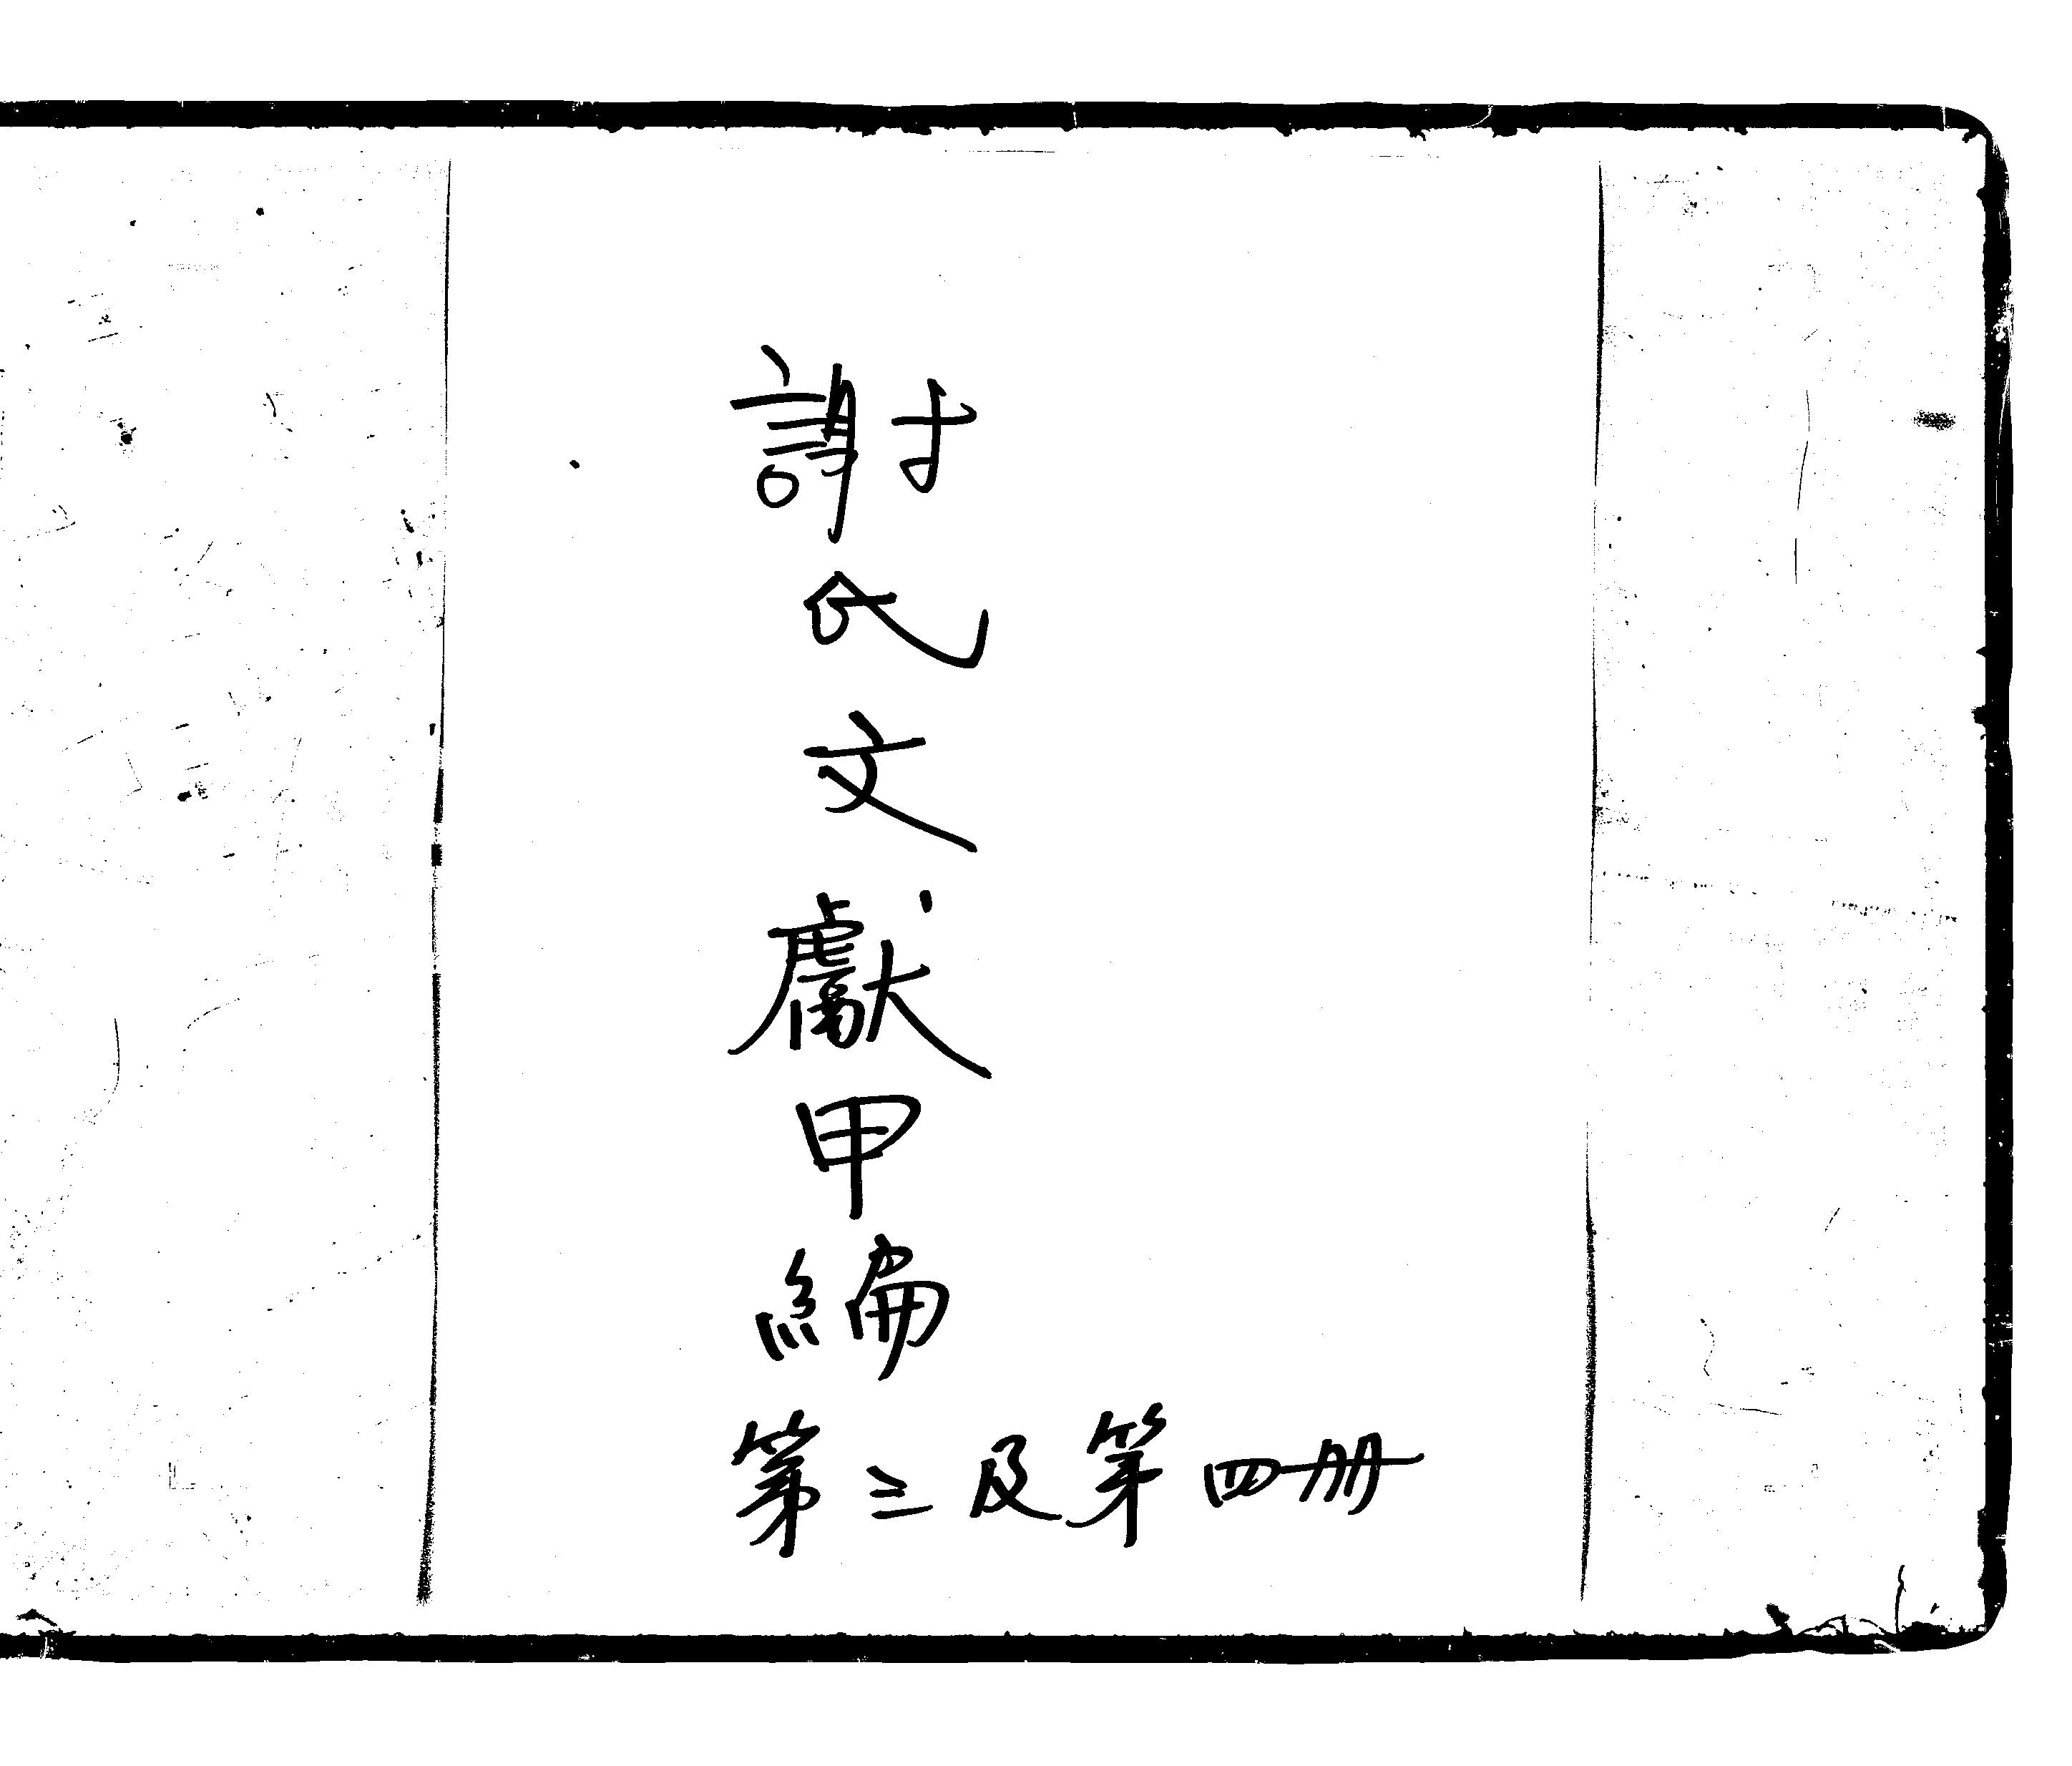 謝氏文獻甲編
第三及第四册